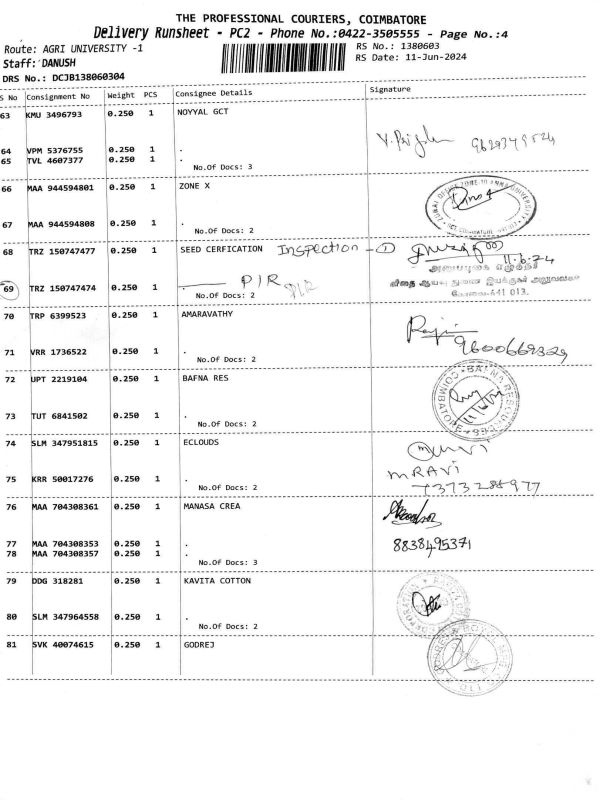 THE PROFESSIONAL COURIERS, COIMBATORE
Delivery Runsheet - PC2 - Phone No.:0422-3505555 - Page No.:4
Route: AGRI UNIVERSITY -1 RS No.: 1380603
Staff: DANUSH RS Date: 11-Jun-2024
DRS No.: DCJB138060304
S No Consignment No Weight PCS Consignee Details Signature
63 KMU 3496793 0.250 1 NOYYAL GCT
64 VPM 5376755 0.250 1 .
65 TVL 4607377 0.250 1 .
No.Of Docs: 3
66 MAA 944594801 0.250 1 ZONE X
67 MAA 944594808 0.250 1 .
No.Of Docs: 2
68 TRZ 150747477 0.250 1 SEED CERFICATION Inspection - ①
11.6.24
69 TRZ 150747474 0.250 1 . PIR PIR
No.Of Docs: 2
70 TRP 6399523 0.250 1 AMARAVATHY
9600669329
71 VRR 1736522 0.250 1 .
No.Of Docs: 2
72 UPT 2219104 0.250 1 BAFNA RES
73 TUT 6841502 0.250 1 .
No.Of Docs: 2
74 SLM 347951815 0.250 1 ECLOUDS
MRAVI
75 KRR 50017276 0.250 1 .
No.Of Docs: 2
76 MAA 704308361 0.250 1 MANASA CREA
77 MAA 704308353 0.250 1 . 8838495371
78 MAA 704308357 0.250 1 .
No.Of Docs: 3
79 DDG 318281 0.250 1 KAVITA COTTON
80 SLM 347964558 0.250 1 .
No.Of Docs: 2
81 SVK 40074615 0.250 1 GODREJ